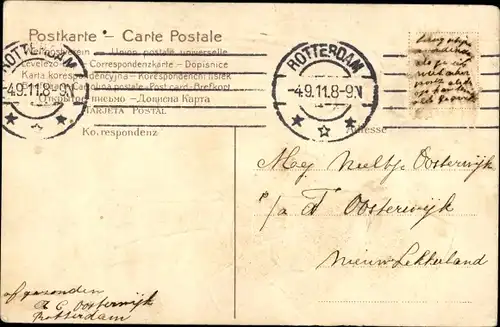 Postkarte – Carte Postale
Weltpostverein – Union postale universelle
Levelező-Lap – Correspondenzkarte – Dopisnice
Karta korespondencyjna – Korespondenční lístek
Cartolina postale – Post card – Brefkort
Открытое письмо – Дописна Карта
TARJETA POSTAL
Korrespondenz
Adresse
ROTTERDAM
-4.9.11.8-9N
ROTTERDAM
-4.9.11.8-9N
Mej Neeltje Oosterwijk
p/a T Oosterwijk
Nieuw Lekkerland
afgezonden
A C Oosterwijk
Rotterdam